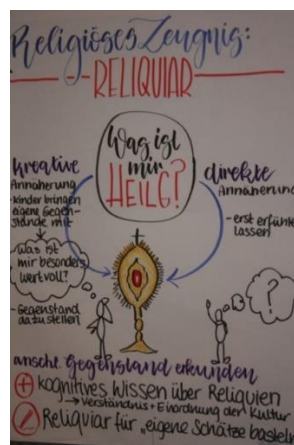 Religiöses Zeugnis:
RELIQUIAR
Was ist
mir
HEILG?
kreative
Annäherung
- Kinder bringen
eigene Gegen-
stände mit
Was ist
mir besonders
wertvoll?
- Gegenstand
dazustellen
direkte
Annäherung
- erst erfühlen
lassen
?
anschl. Gegenstand erkunden
+ kognitives Wissen über Reliquien
→ Verständnis + Einordnung der Kultur
Reliquiar für „eigene Schätze basteln